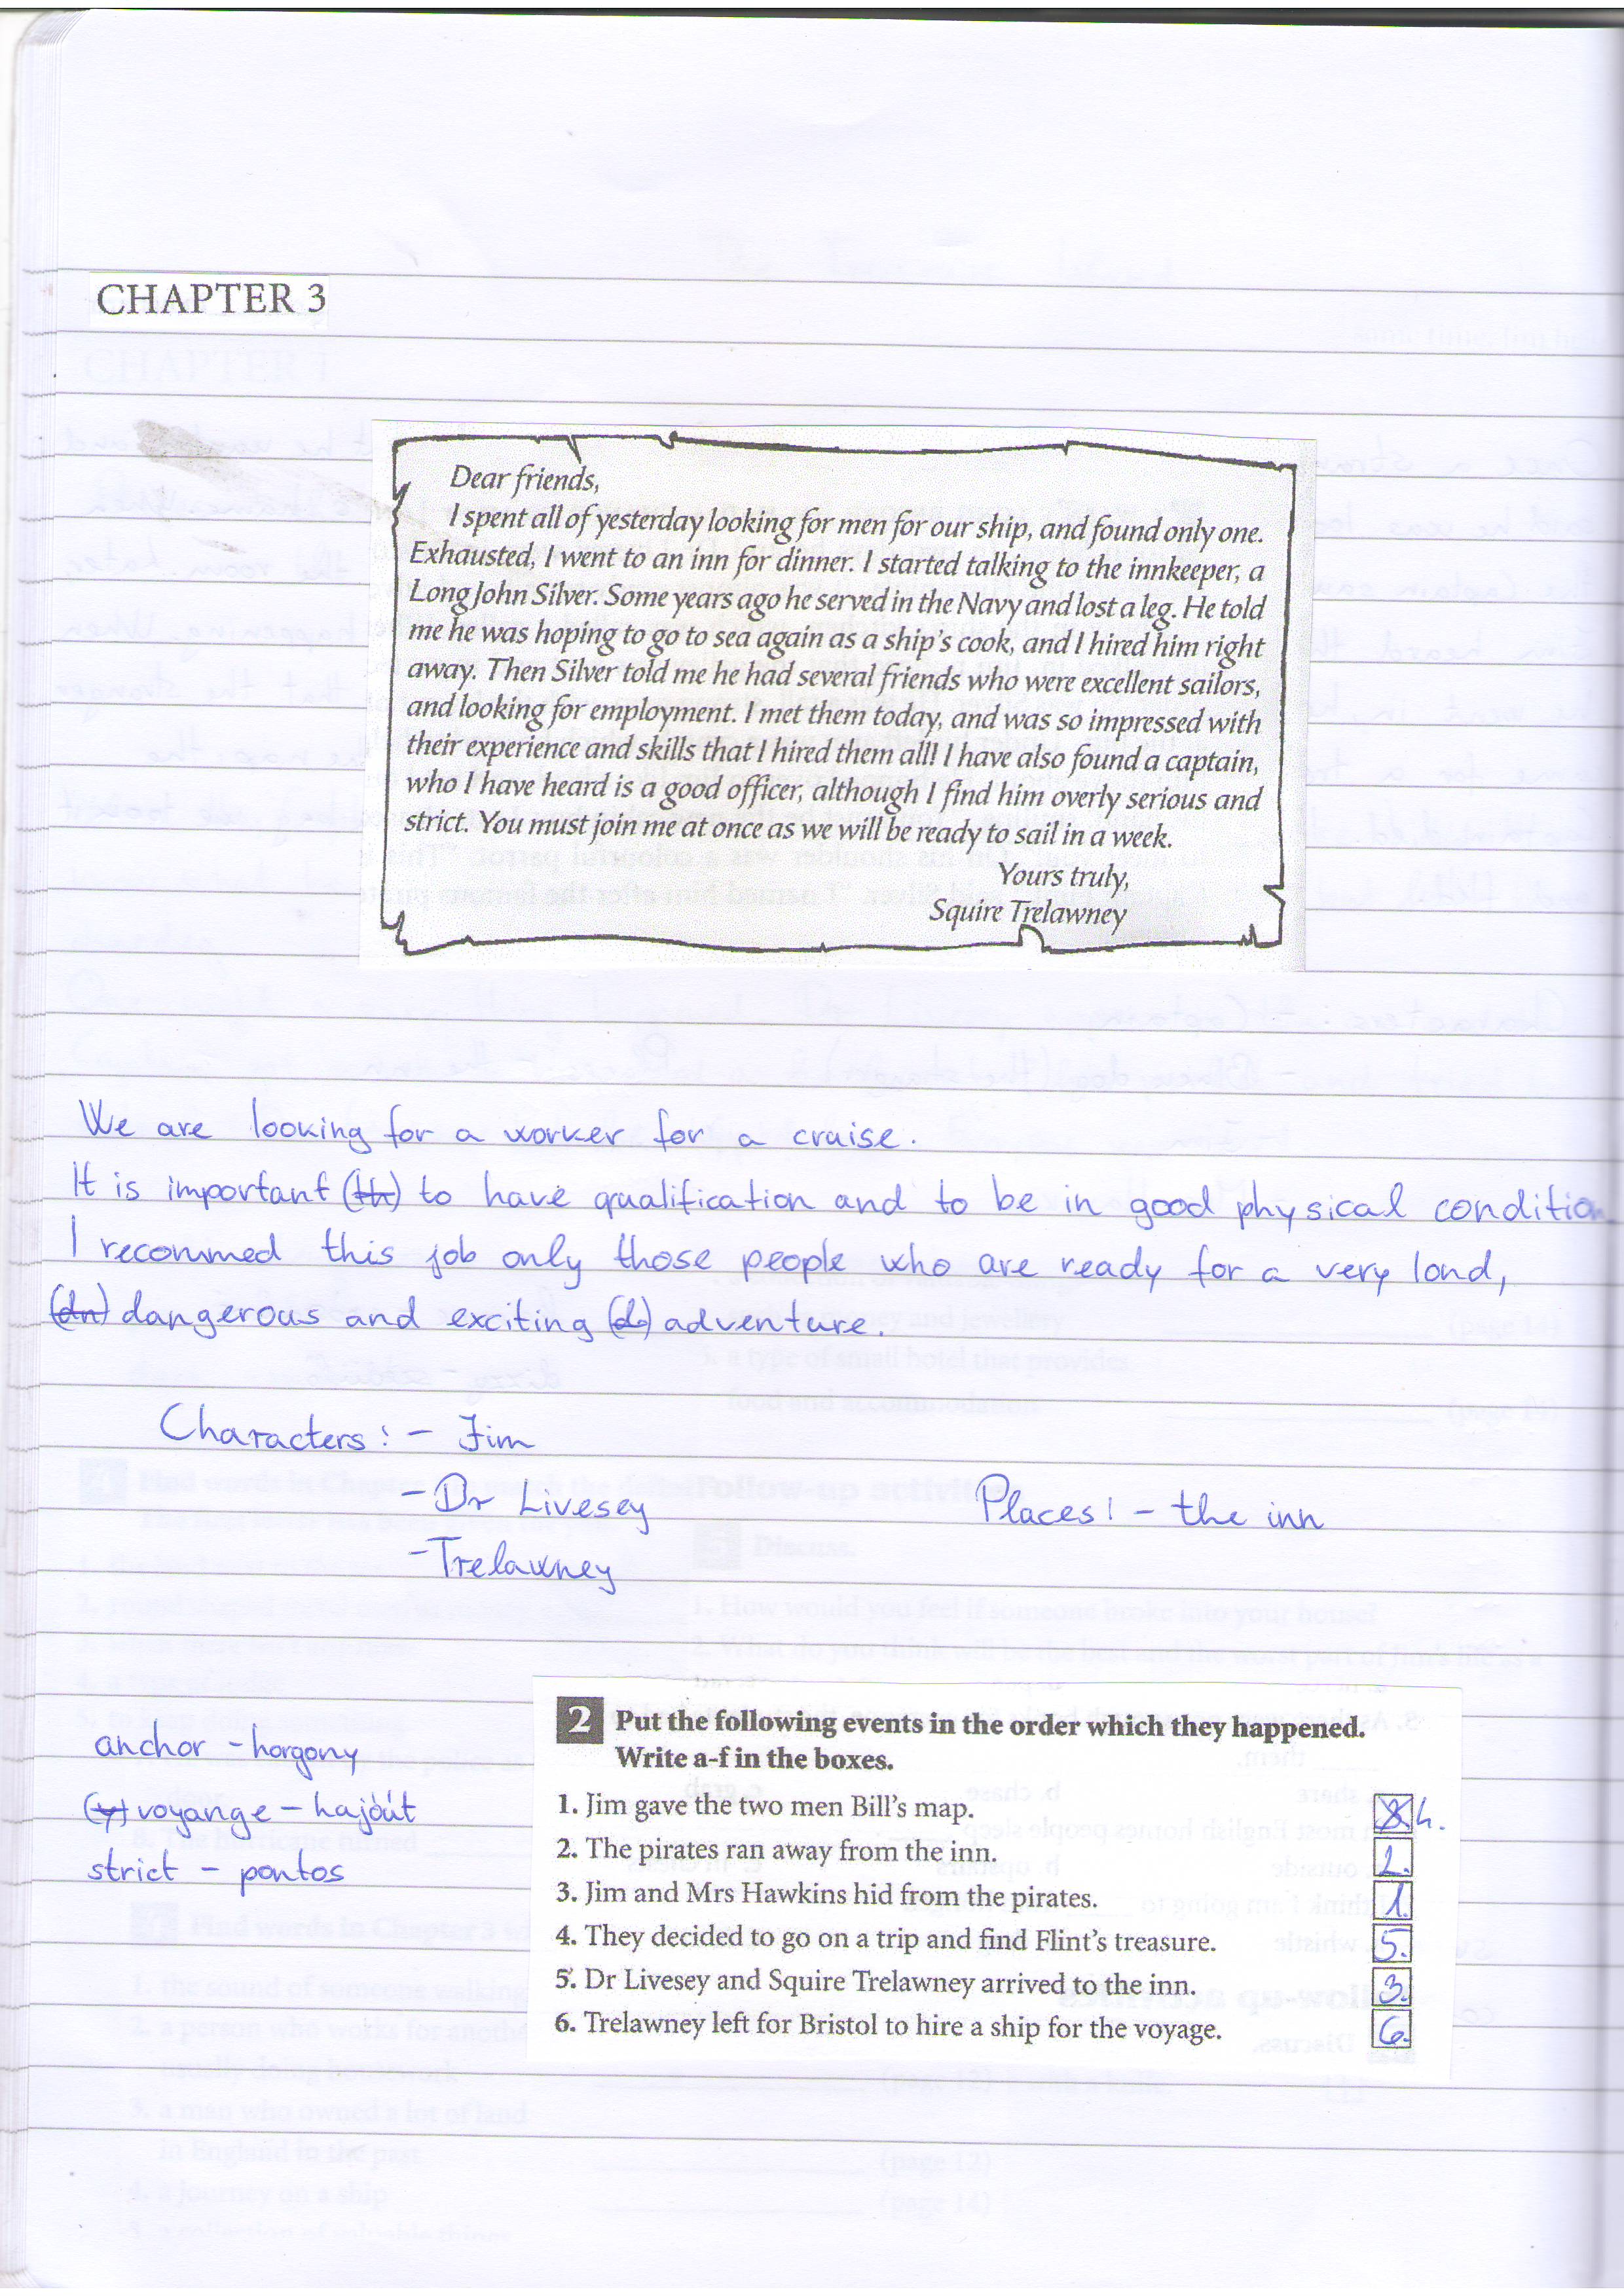 CHAPTER 3
Dear friends,
I spent all of yesterday looking for men for our ship, and found only one.
Exhausted, I went to an inn for dinner. I started talking to the innkeeper, a
Long John Silver. Some years ago he served in the Navy and lost a leg. He told
me he was hoping to go to sea again as a ship's cook, and I hired him right
away. Then Silver told me he had several friends who were excellent sailors,
and looking for employment. I met them today, and was so impressed with
their experience and skills that I hired them all! I have also found a captain,
who I have heard is a good officer, although I find him overly serious and
strict. You must join me at once as we will be ready to sail in a week.
Yours truly,
Squire Trelawney
We are looking for a worker for a cruise.
It is important (th) to have qualification and to be in good physical condition
I recommed this job only those people who are ready for a very lond,
(dn) dangerous and exciting (d) adventure.
Characters: - Jim
- Dr Livesey
Places: - the inn
- Trelawney
anchor - horgony
(y) voyange - hajóút
strict - pontos
2 Put the following events in the order which they happened.
Write a-f in the boxes.
1. Jim gave the two men Bill's map. 4.
2. The pirates ran away from the inn. 2.
3. Jim and Mrs Hawkins hid from the pirates. 1.
4. They decided to go on a trip and find Flint's treasure. 5.
5. Dr Livesey and Squire Trelawney arrived to the inn. 3.
6. Trelawney left for Bristol to hire a ship for the voyage. 6.